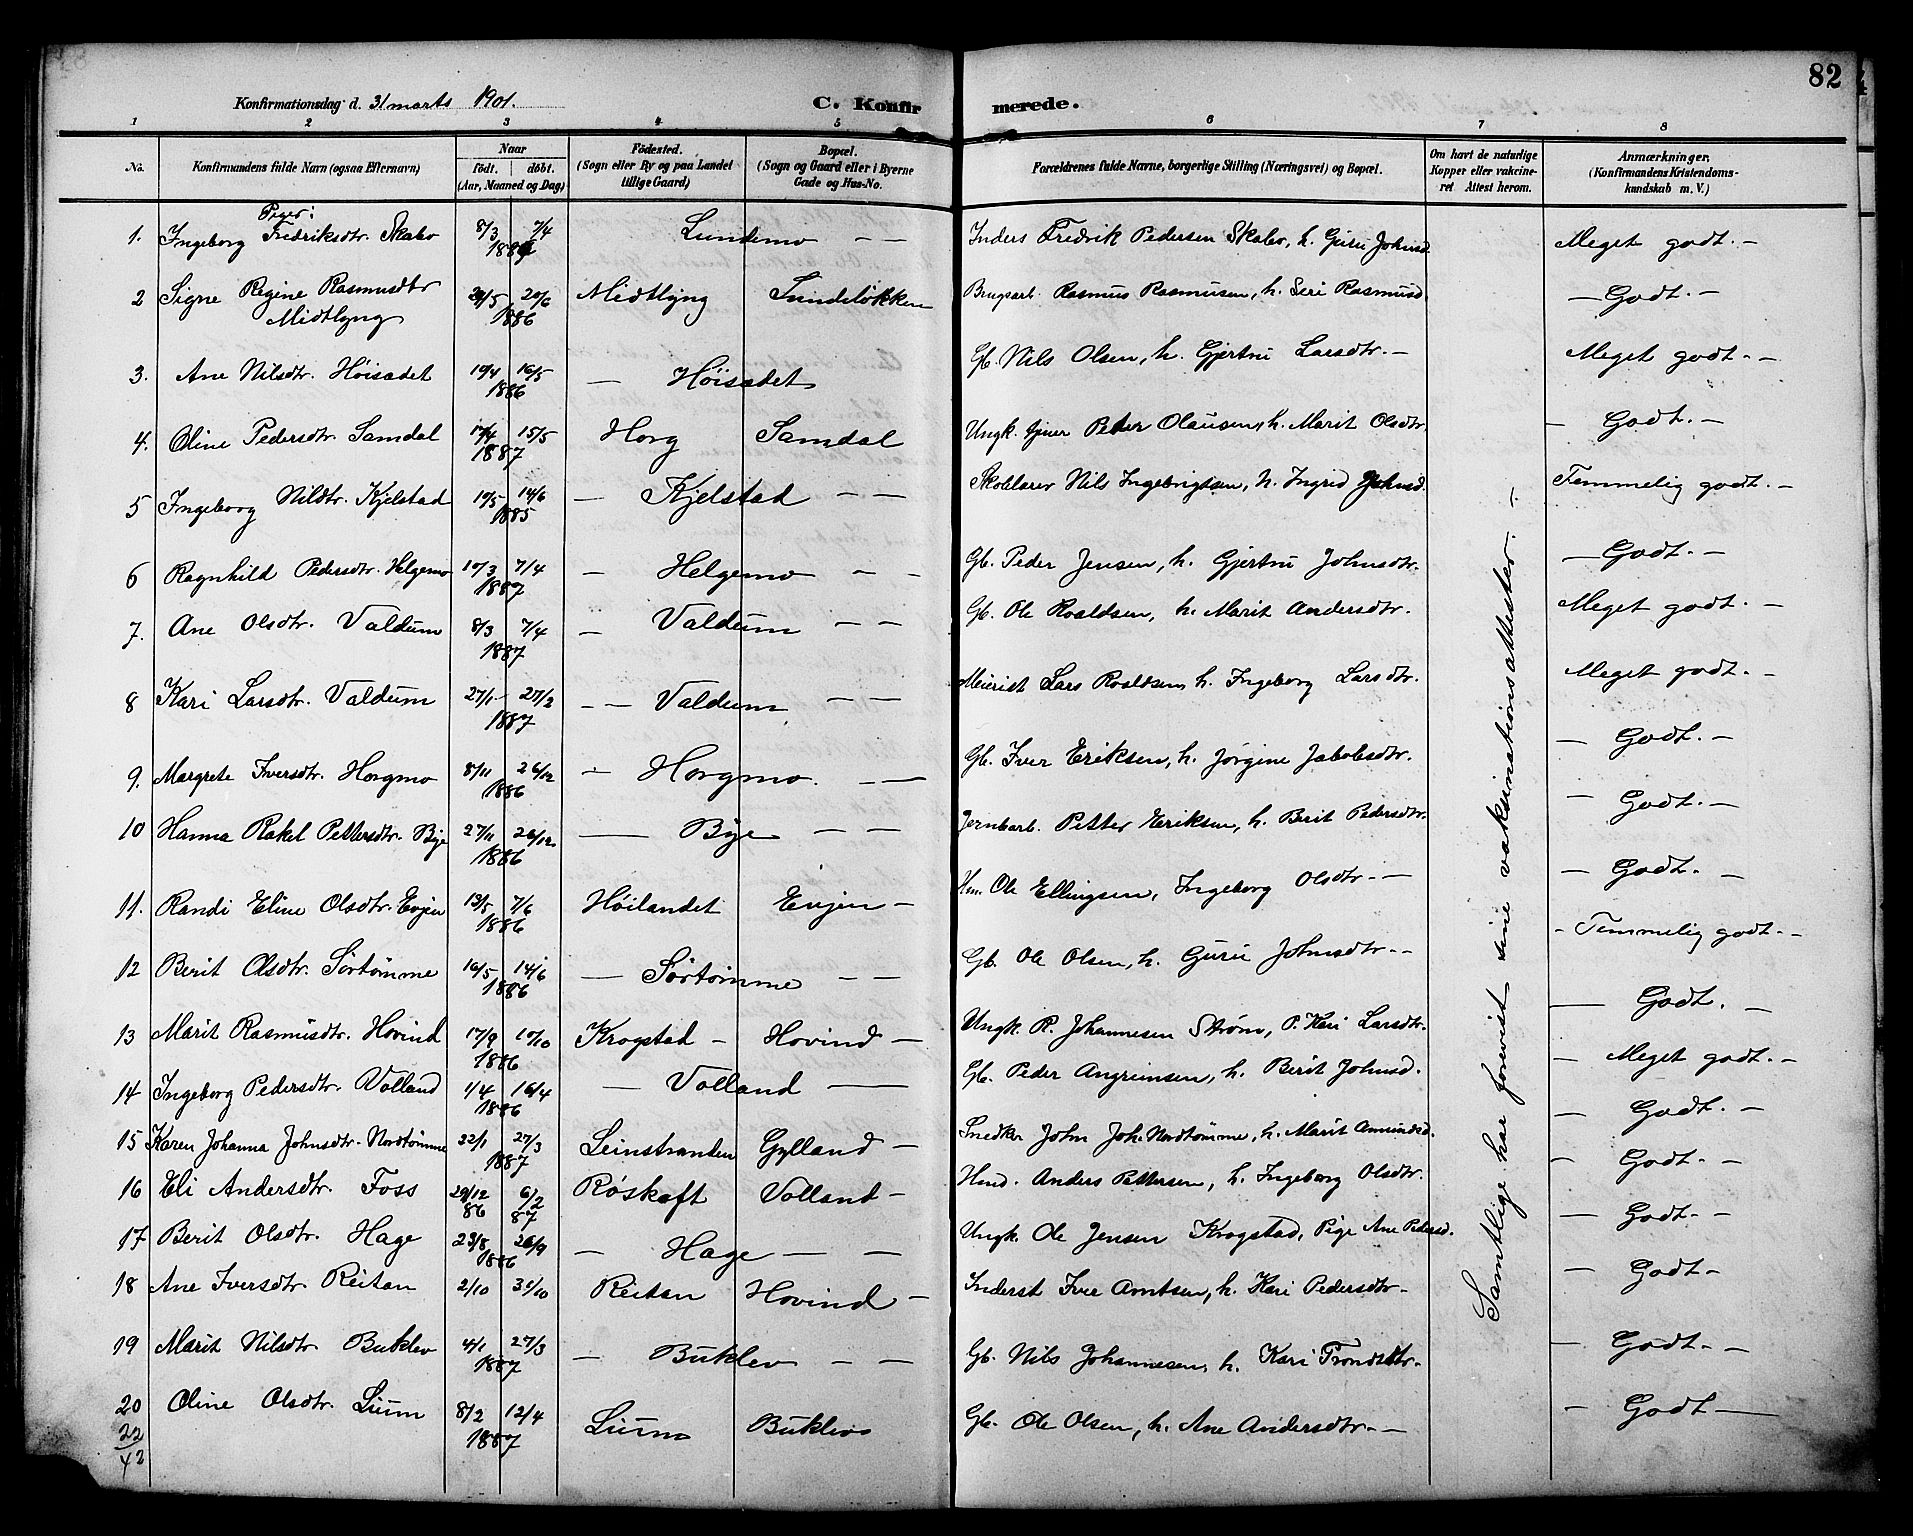 82
Konfirmationsdag d. 31 marts 1901.
C. Konfirmerede.
1 2 3 4 5 6 7 8
No. Konfirmandens fulde Navn (ogsaa Efternavn) Naar født. døbt. (Aar, Maaned og Dag) Födested. (Sogn eller By og paa Landet tillige Gaard) Bopæl. (Sogn og Gaard eller i Byerne Gade og Hus-No. Forældrenes fulde Navne, borgerlige Stilling (Næringsvei) og Bopæl. Om havt de naturlige Kopper eller vakcineret Attest herom. Anmærkninger. (Konfirmandens Kristendomskundskab m. V.)
Piger:
1. Ingeborg Fredriksdtr. Skabo 8/3 7/4 Lundemo — — Inders Fredrik Pedersen Skabo, h. Guru Johnsd. Meget godt. —
2 Signe Regine Rasmusdtr Midtlyng 20/6 1886 Midtlyng Brugsarb. Rasmus Rasmusen, h. Seri Rasmusd. — Godt. —
3. Ane Nilsdtr. Höisadet 10/4 16/5 1886 — Höisadet Gb. Nils Olsen, h. Gjertru Larsdtr. — Meget godt. —
4. Oline Pedersdtr. Samdal 15/5 1887 Horg Samdal Ungk. Peder Olausen, h. Marit Olsdtr. — Godt. —
5 Ingeborg Nilsdtr. Kjelstad 10/5 14/6 1885 — Kjelstad — — Skolelærer Nils Ingebrigtsen, h. Ingrid Johnsd. Temmelig godt. —
6 Ragnhild Pedersdtr. Helgemo 10/3 7/4 1887 — Helgemo — — Gb. Peder Jensen, h. Gjertru Johnsdtr. — Godt. —
7. Ane Olsdtr. Valdum 8/3 7/4 1887 — Valdum — — Gb. Ole Roaldsen, h. Marit Andersdtr. Meget godt. —
8 Kari Larsdtr. Valdum 27/1 27/2 1887 — — Valdum — — Meierist Lars Roaldsen, h. Ingeborg Larsdtr. Meget godt. —
9. Margrete Iversdtr. Horgmo 8/11 26/12 1886 — Horgmo. — — Gb. Iver Eriksen, h. Jørgine Jakobsdtr. — Godt. —
10 Hanna Rakel Pettersdtr. Bye 27/11 26/12 1886 — Bye — — Jernbarb. Petter Eriksen, h. Berit Pedersdtr. — Godt. —
11. Randi Eline Olsdtr. Evjen 13/5 7/6 1886 Höilandet Evjen — Hm. Ole Ellingsen, Ingeborg Olsdtr. — — Godt. —
12 Berit Olsdtr. Sörtömme 16/5 14/6 1886 — Sörtömme — — Gb. Ole Olsen, h. Guru Johnsdtr. — - Temmelig godt. —
13 Marit Rasmusdtr. Hovind 17/9 10/10 1886 Krogstad — Hovind — Ungk. R. Johannesen Ström, P. Kari Larsdtr. — Godt. —
14 Ingeborg Pedersdtr. Volland 1/4 16/4 1886 — Volland — Gb. Peder Angrimsen, h. Berit Johnsd. — Meget godt. —
15 Karen Johanna Johnsdtr. Nordtömme 22/1 27/3 1887 Leinstranden Gylland — Snedker John Joh. Nordtömme, h. Marit Amundsd. — Godt. —
16 Eli Andersdtr. Foss 29/12 86 6/2 87 Röskaft Volland — Hmd. Anders Pettersen, h. Ingeborg Olsdtr. — Godt. —
17 Berit Olsdtr. Hage 23/8 26/9 1886 — Hage — — Ungk. Ole Jensen Krogstad, Pige Ane Pedersd. — Godt. —
18 Ane Iversdtr. Reitan 2/10 31/10 Reitan Hovind — Inderst Iver Arntsen, h. Kari Pedersdtr — — Godt —
19 Marit Nilsdtr. Buklev 4/1 27/3 1887 — Buklev — — Gb. Nils Johannesen, h. Kari Trondsdtr. — Godt. —
20 Oline Olsdtr. Lium 8/2 12/4 1887 Lium Buklev Gb. Ole Olsen, h. Ane Andersdtr. — — Godt —
22
42
Samtlige har forevist sine vakcinationsattester. —